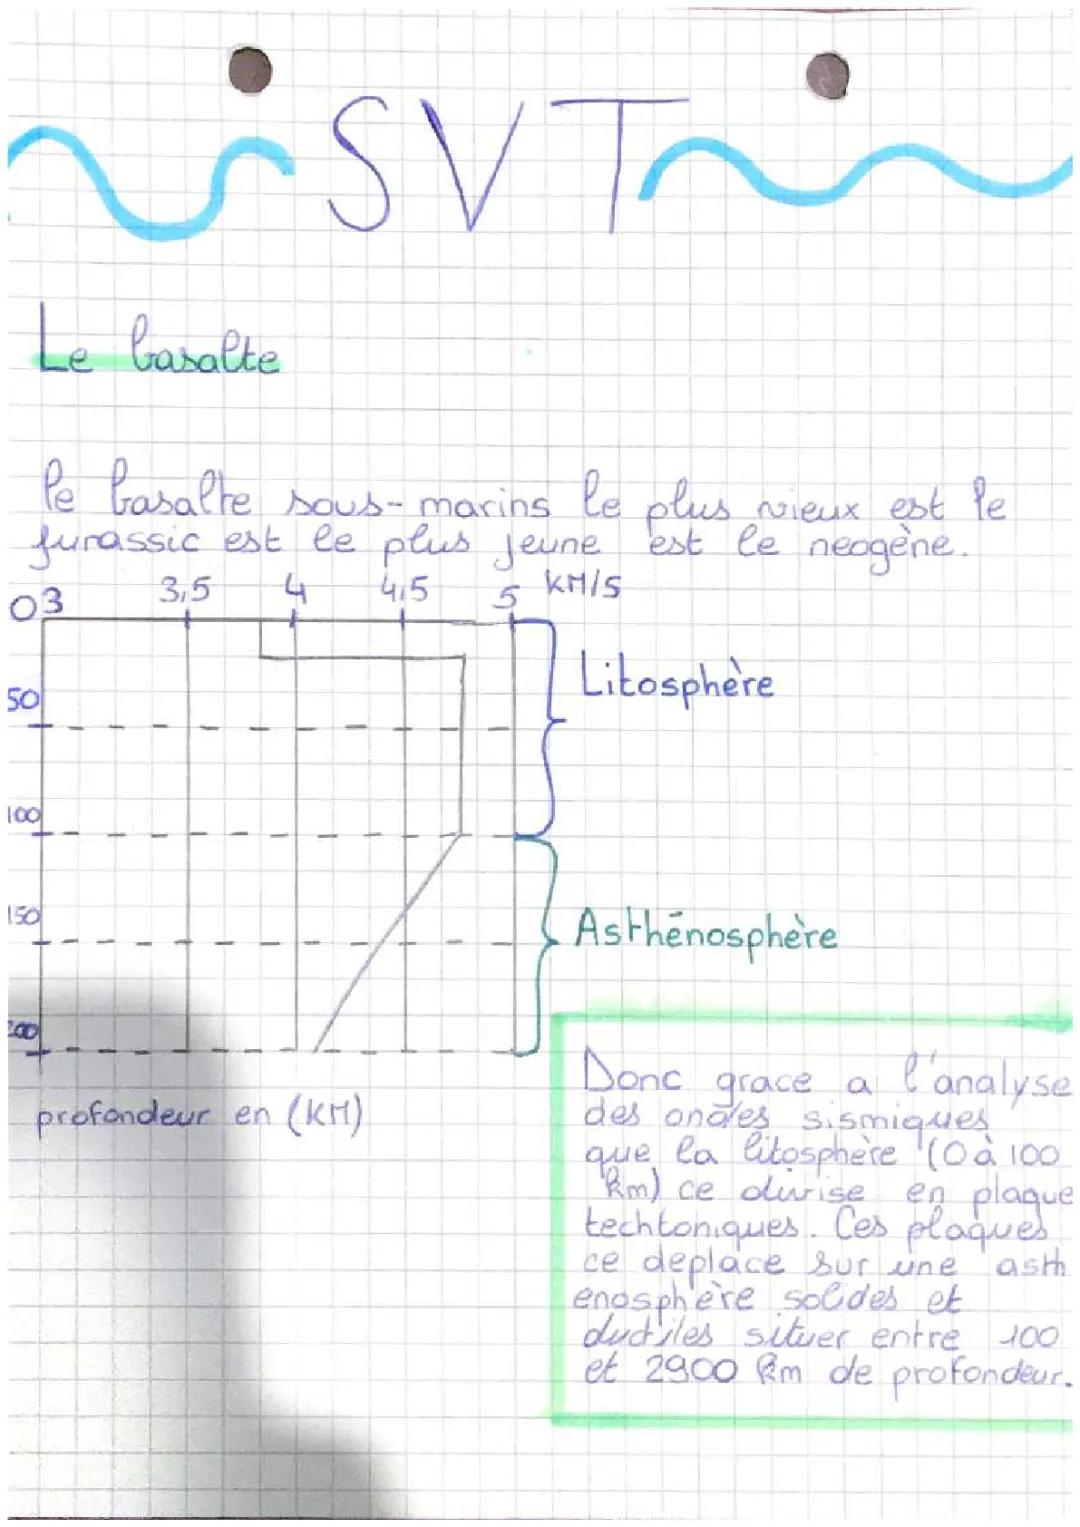 SVT
Le basalte
le basalte sous-marins le plus vieux est le
jurassic est le plus jeune est le neogène.
03 3,5 4 4,5 5 KM/S
Litosphère
50
100
150
Asthénosphère
200
profondeur en (KM)
Donc grace a l'analyse
des ondes sismiques
que la litosphère (0 à 100
km) ce divise en plaque
techtoniques. Ces plaques
ce deplace sur une asth
enosphère solides et
ductiles situer entre 100
et 2900 km de profondeur.